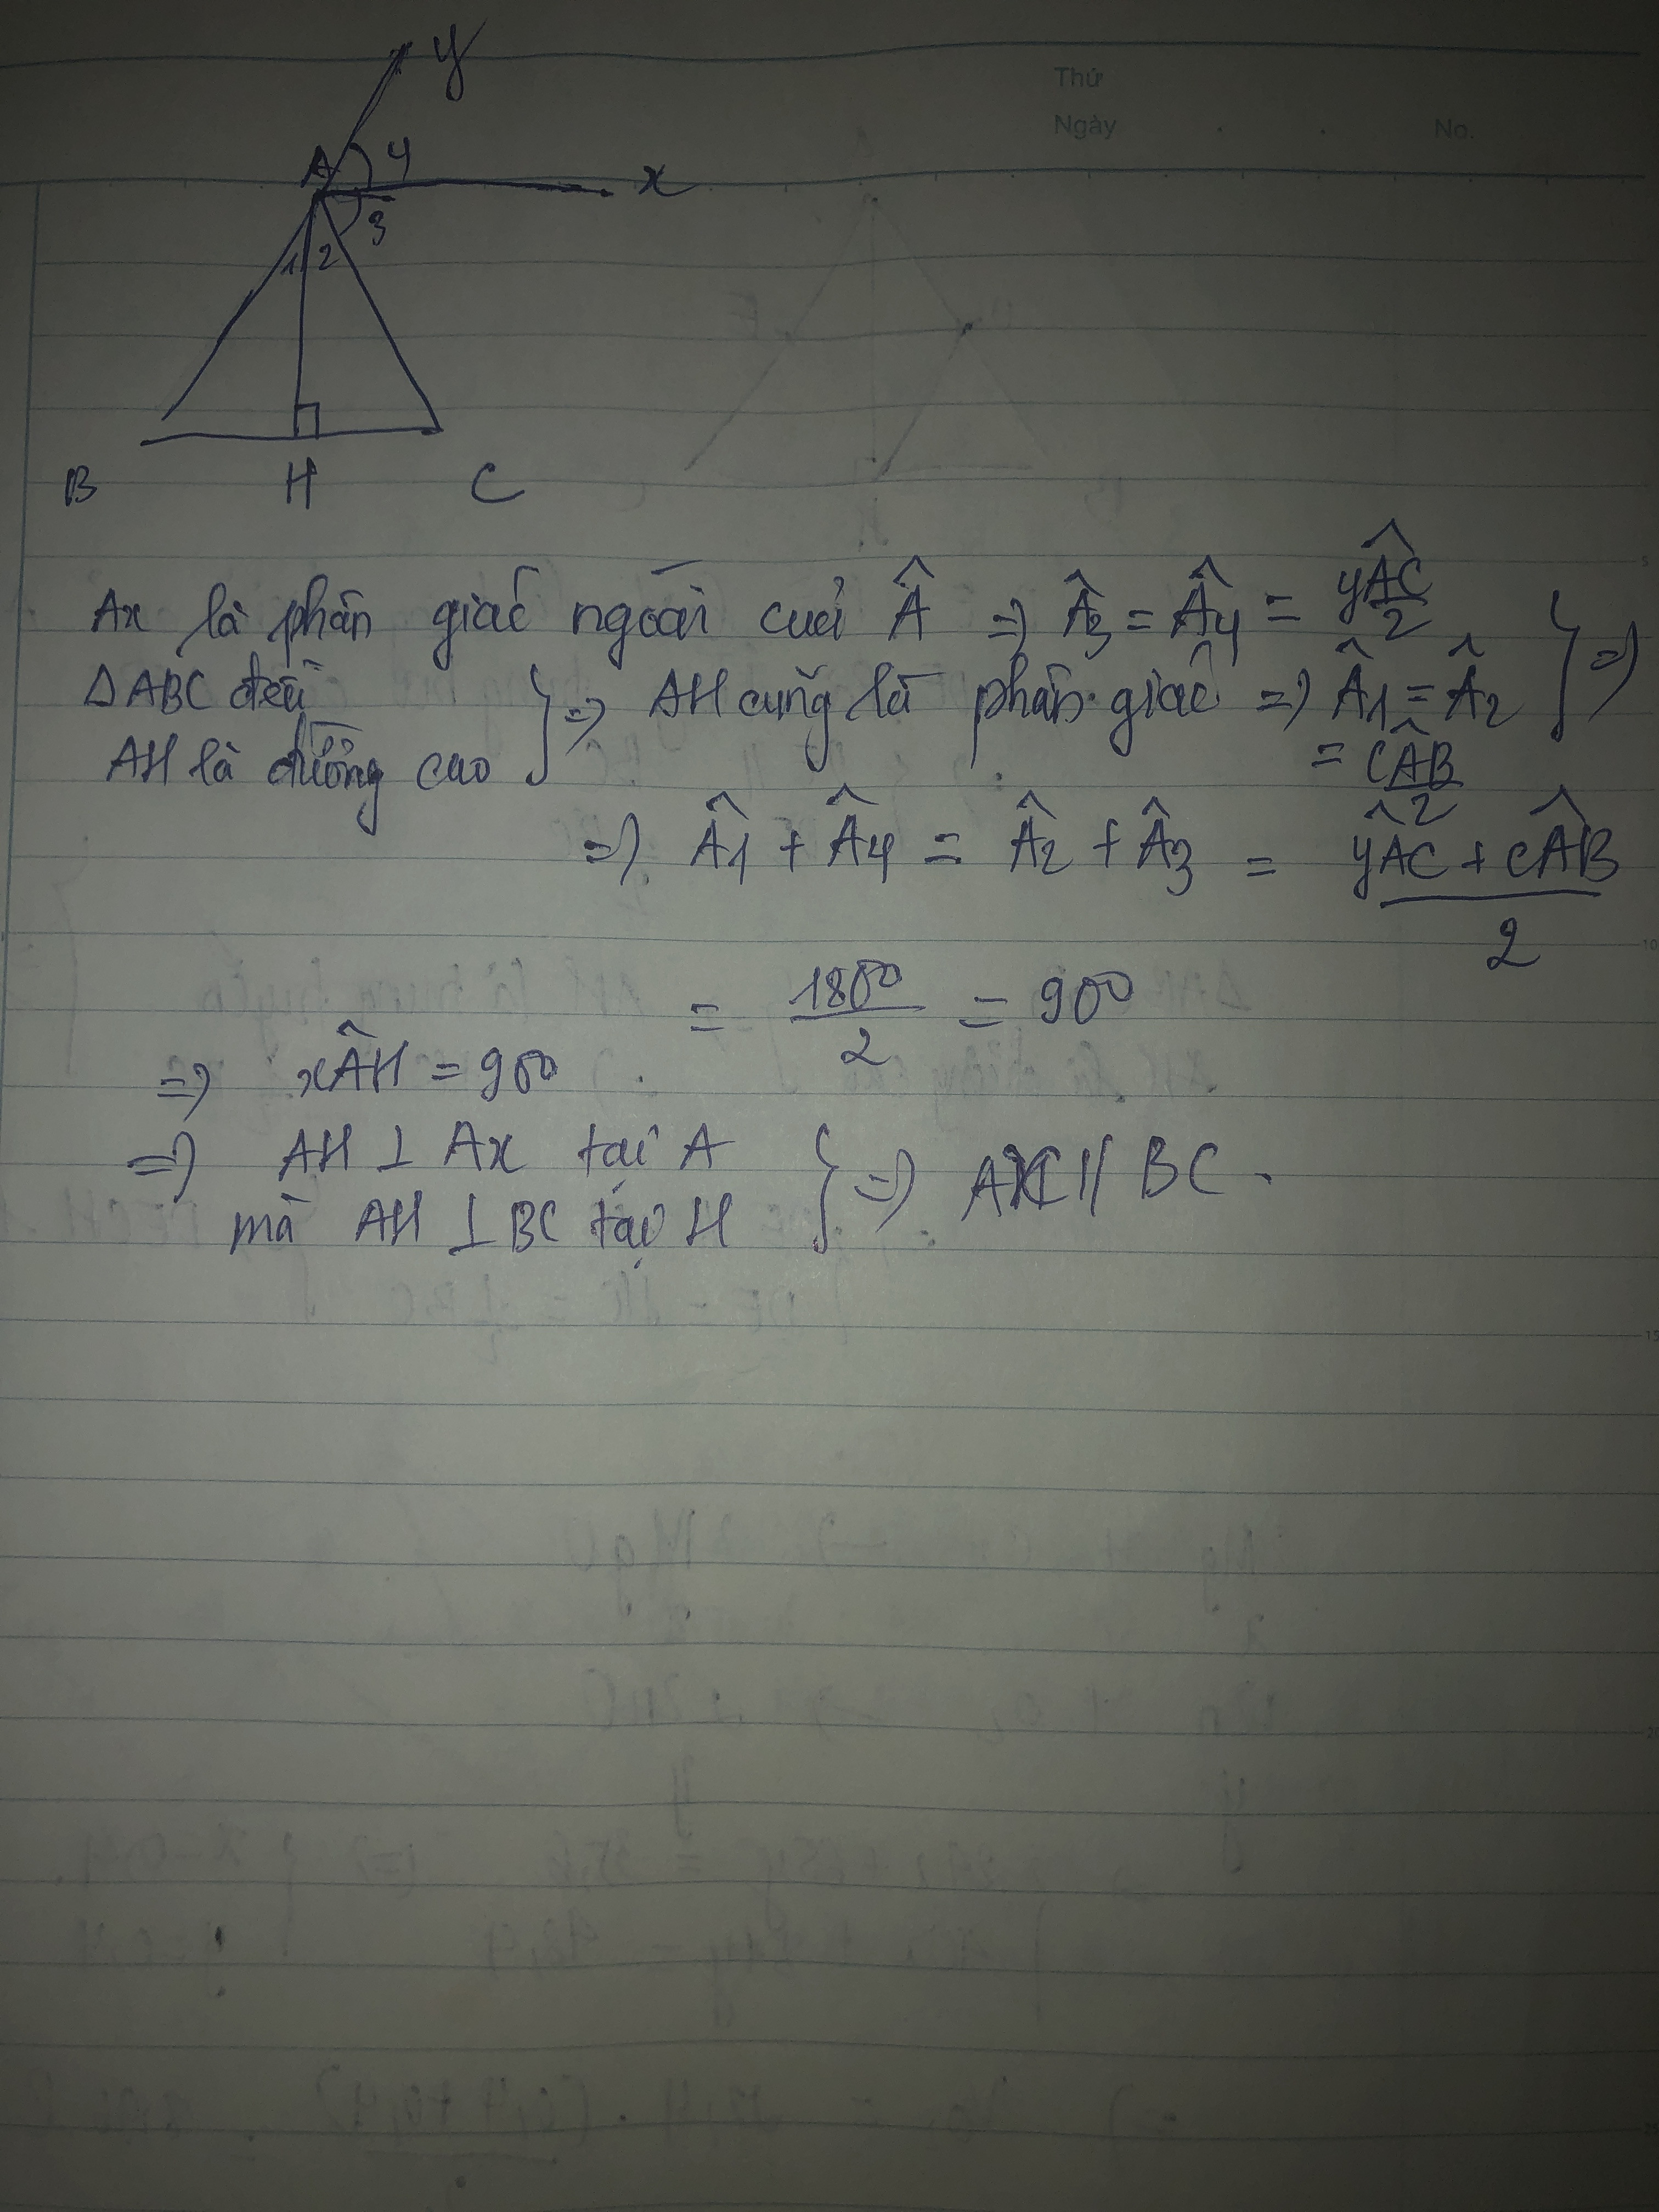 Thứ
Ngày . . No.
y
A 4
x
3
1 2
B H C
Ax là phân giác ngoài của Â => Â3 = Â4 = yÂC/2
Δ ABC đều
AH là đường cao } => AH cũng là phân giác => Â1 = Â2 } =>
= CÂB/2
=> Â1 + Â4 = Â2 + Â3 = (yÂC + CÂB)/2
= 180/2 = 90
=> xÂH = 90
=> AH ⊥ Ax tại A
mà AH ⊥ BC tại H } => AX // BC.
5
10
15